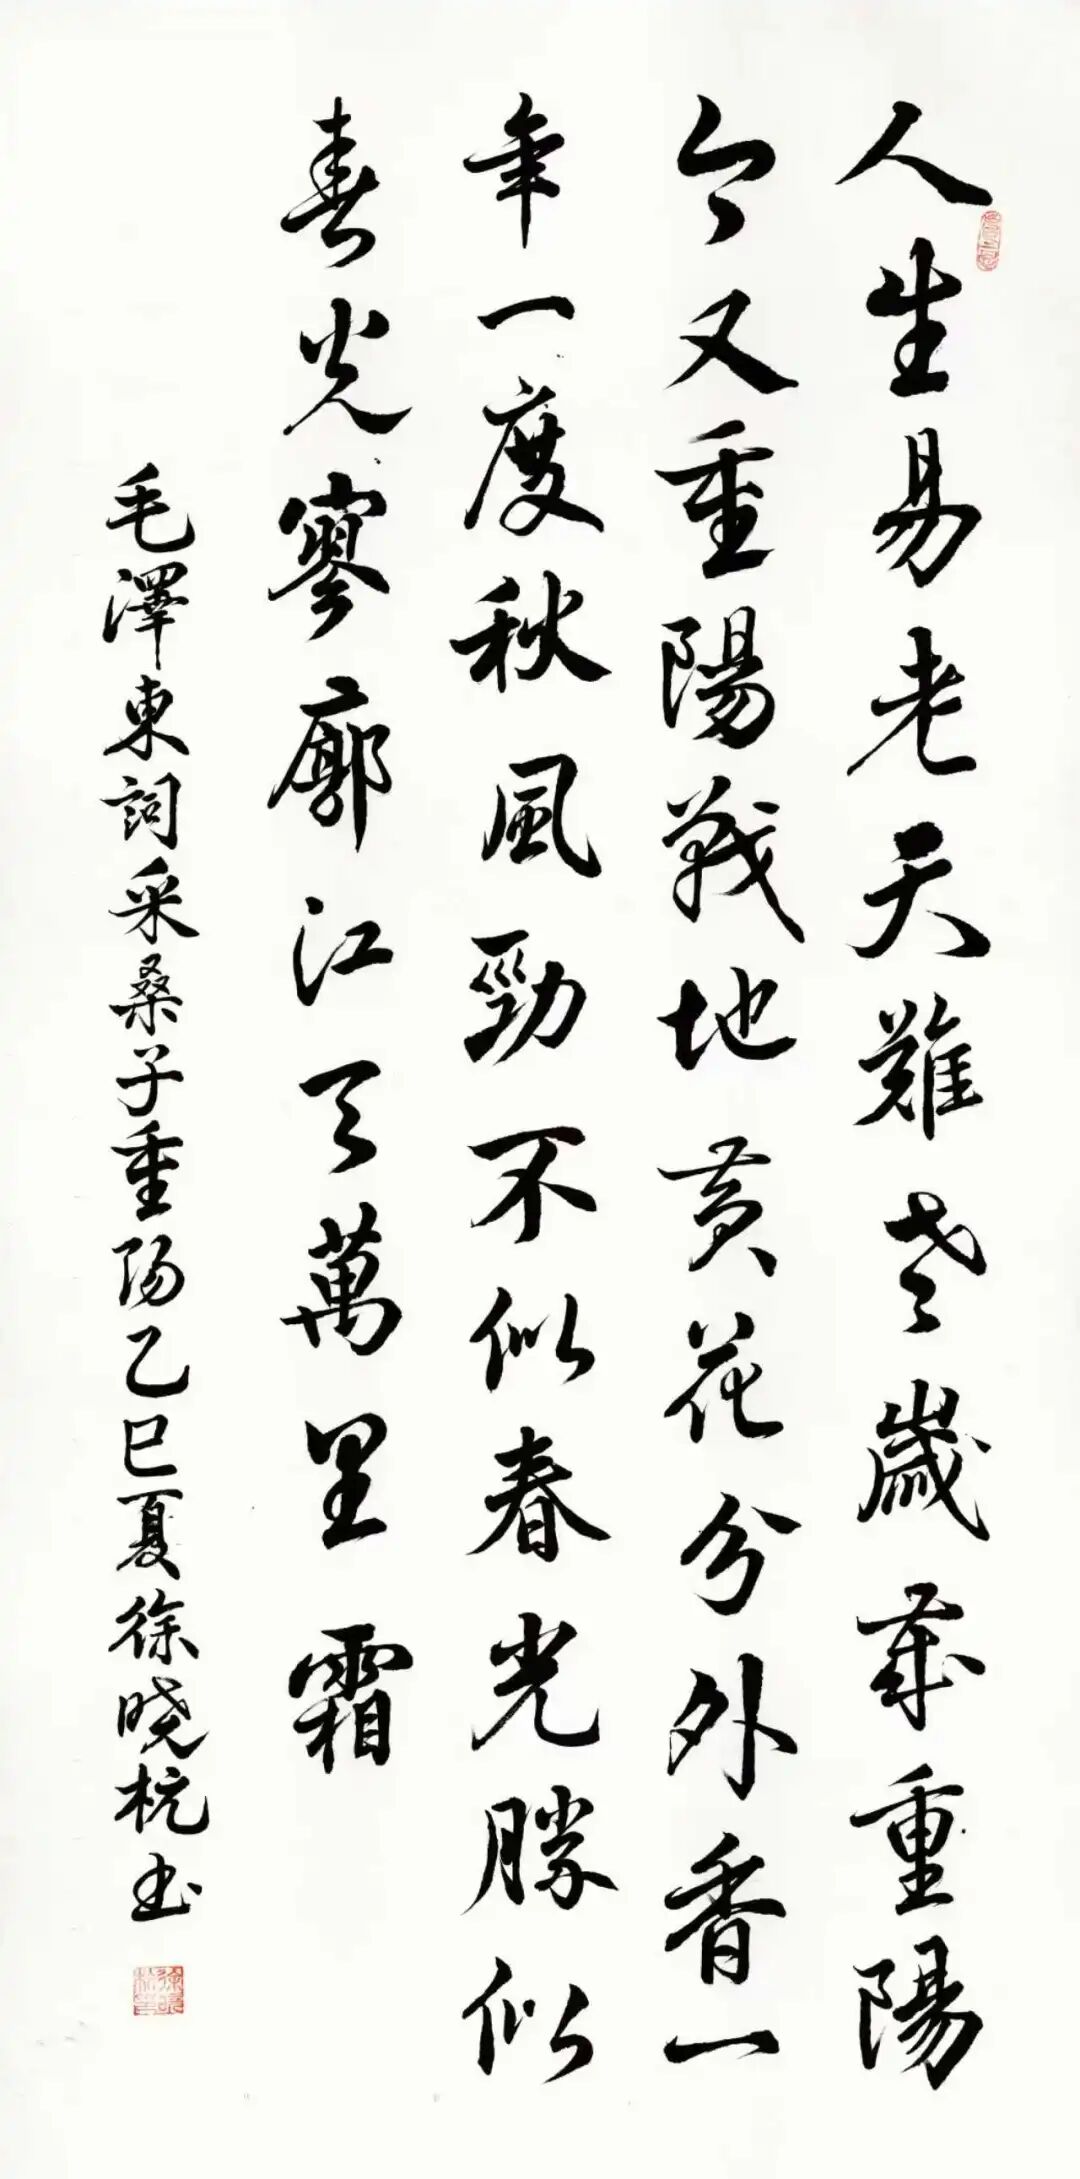 人生易老天難老歲歲重陽
今又重陽戰地黄花分外香一
年一度秋風勁不似春光勝似
春光寥廓江天萬里霜
毛澤東詞采桑子重陽乙巳夏徐晓杭书